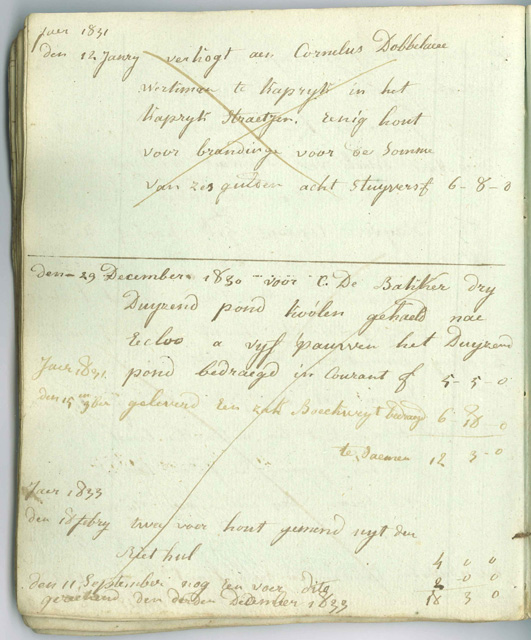 Jaer 1831
den 12 Janry verkogt aen Cornelus Dobbelaere
werkman te Kapryk in het
Kapryk Straetjen. eenig hout
voor brandinge voor de Somme
van zes gulden acht Stuyvers f 6-8-0
den 29 December 1830 voor C. De Bakker dry
Duyzend pond koolen gehaeld nae
Eecloo a vyf het Duyzend
pond bedraegd in Courant f 5-5-0
Jaer 1831
den 15 9ber geleverd een zak Boekweyt 6 18 0
te Saemen 12 3-0
Jaer 1833
den 18 voer hout uyt den
4 0 0
den 11 September nog een voer dito 2-0-0
gerekend den derden December 1833 18 3 0